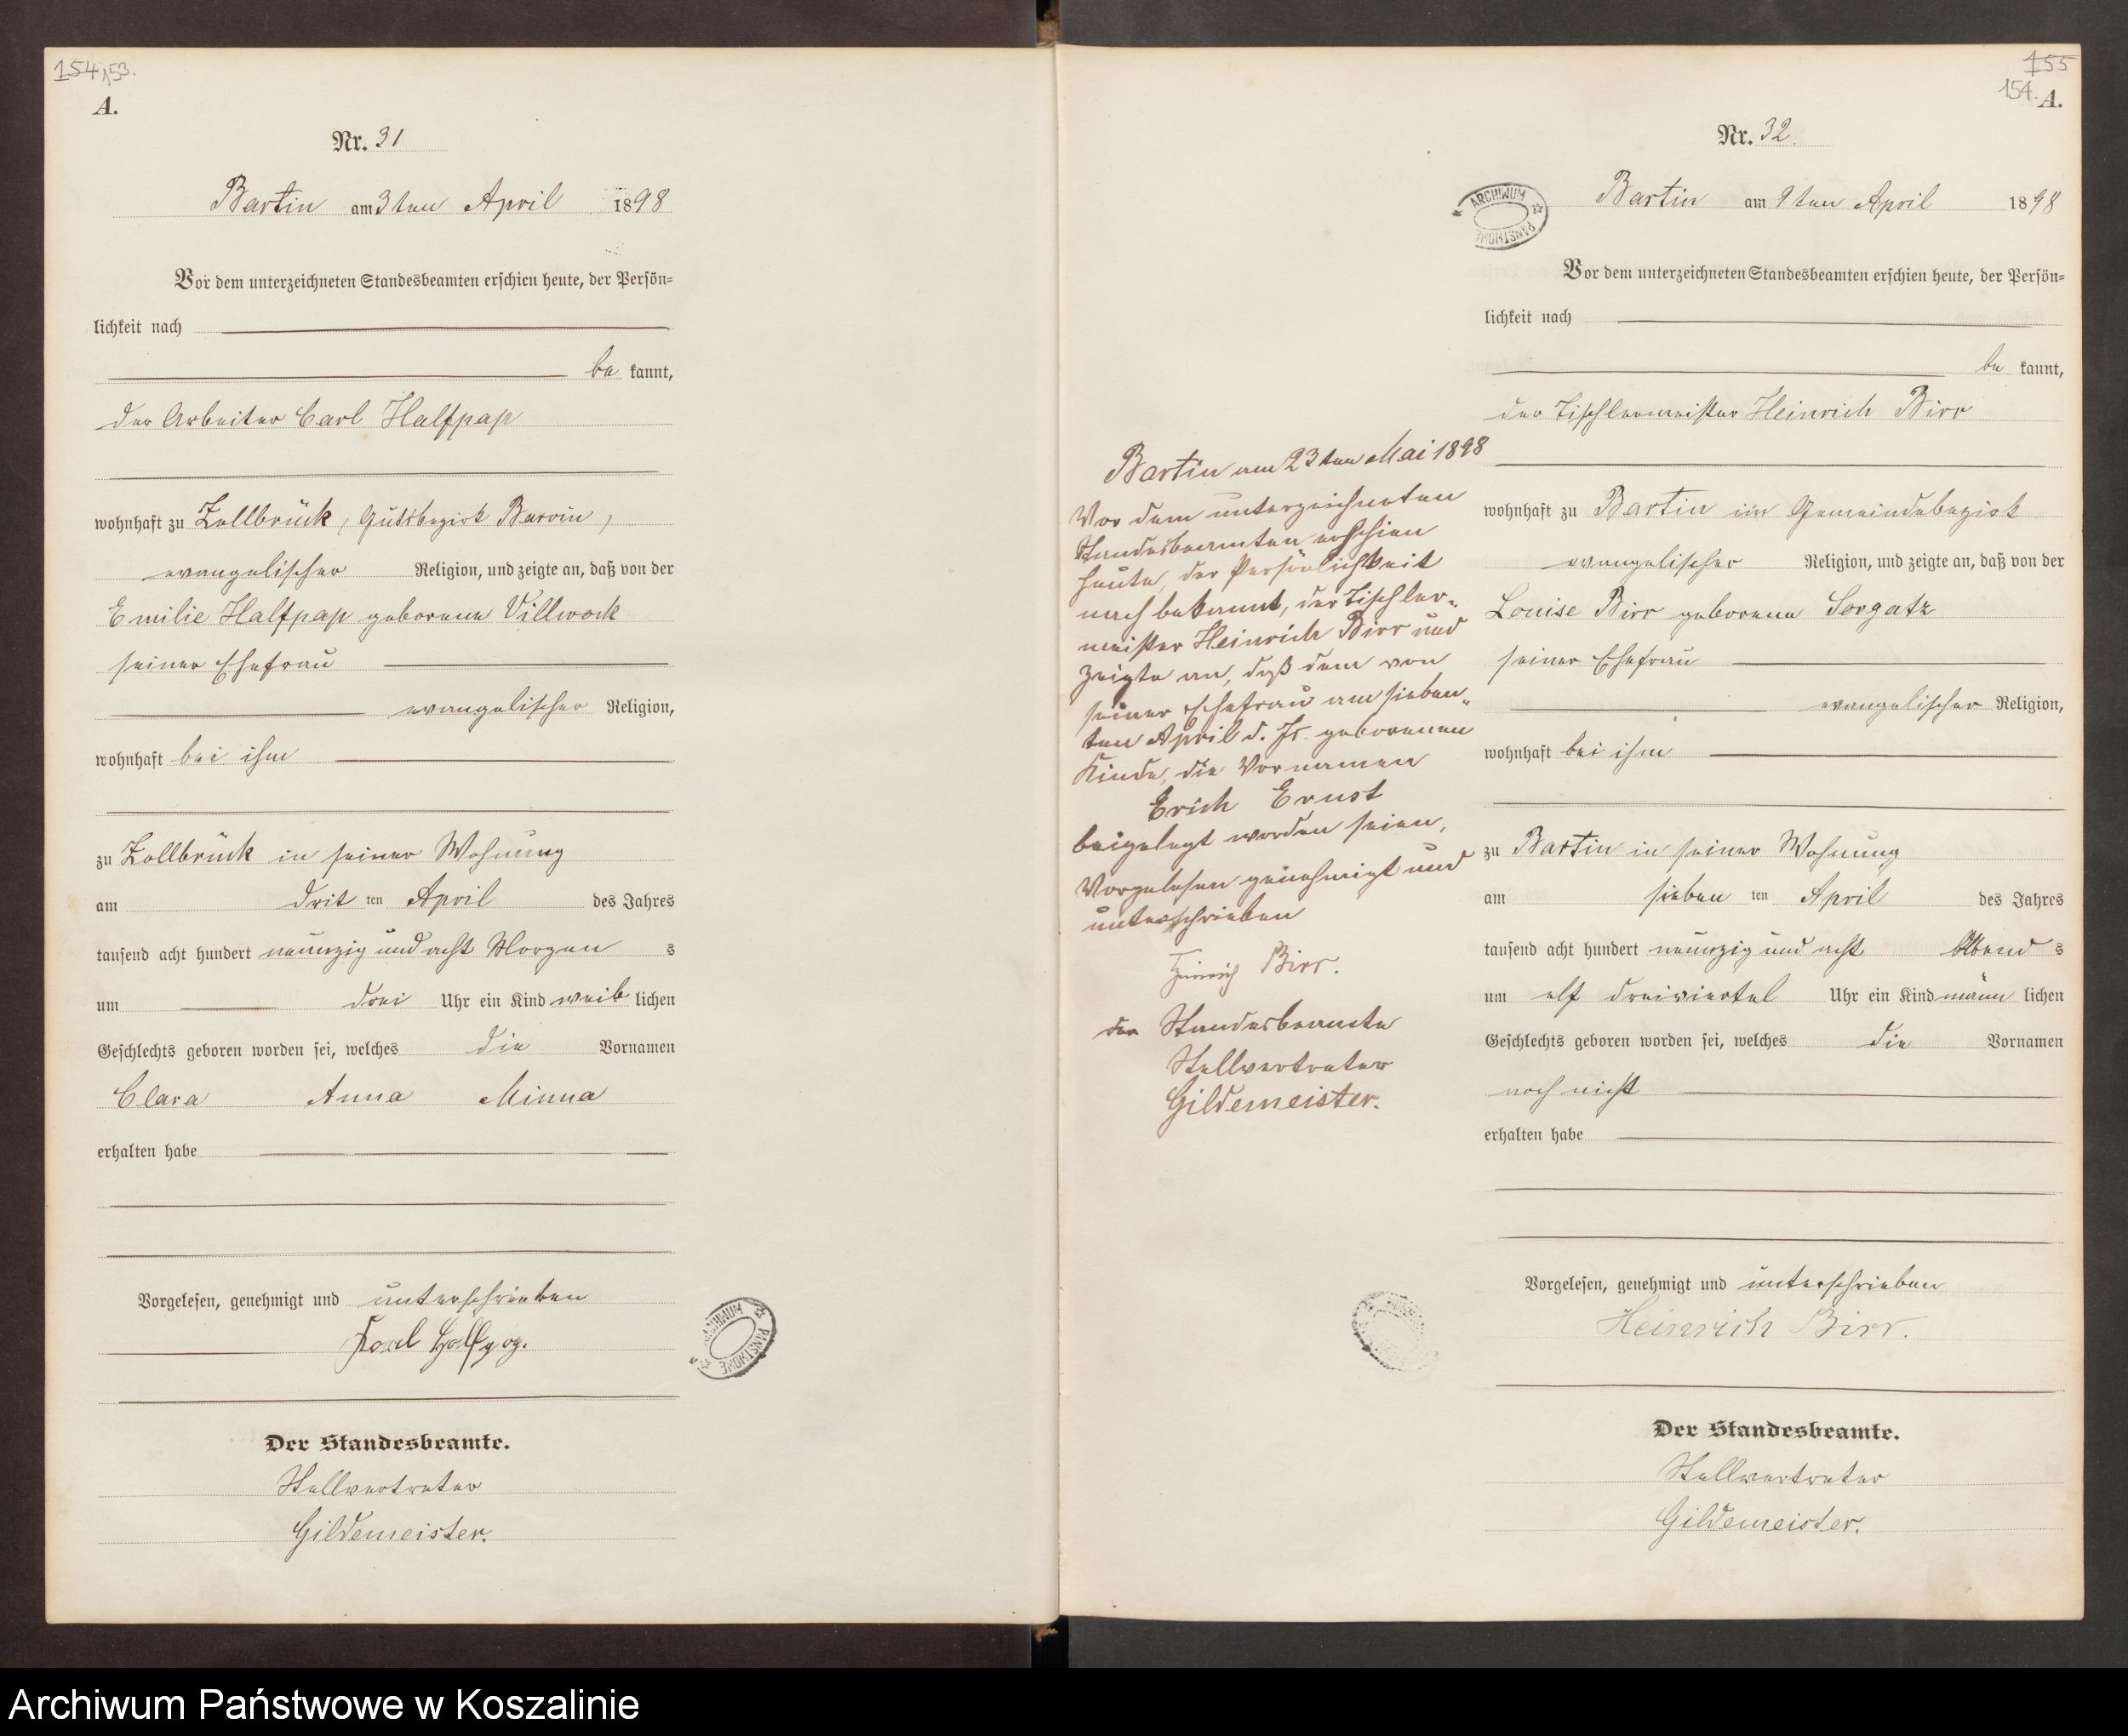 154 153.
A.
Nr. 31
Bartin am 3ten April 1898
Vor dem unterzeichneten Standesbeamten erschien heute, der Persön=
lichkeit nach
be kannt,
der Arbeiter Carl Halfpap
wohnhaft zu Zollbrück, Gutsbezirk Barvin,
evangelischer Religion, und zeigte an, daß von der
Emilie Halfpap geborene Villwock
seiner Ehefrau
evangelischer Religion,
wohnhaft bei ihm
zu Zollbrück in seiner Wohnung
am drit ten April des Jahres
tausend acht hundert neunzig und acht Morgen s
um drei Uhr ein Kind weib lichen
Geschlechts geboren worden sei, welches die Vornamen
Clara Anna Minna
erhalten habe
Vorgelesen, genehmigt und unterschrieben
Karl Halfpap.
Der Standesbeamte.
Stellvertreter
Gildemeister.
ARCHIWUM PAŃSTWOWE
155
154. A.
Nr. 32.
Bartin am 9ten April 1898
ARCHIWUM PAŃSTWOWE
Vor dem unterzeichneten Standesbeamten erschien heute, der Persön=
lichkeit nach
be kannt,
der Tischlermeister Heinrich Birr
wohnhaft zu Bartin im Gemeindebezirk
evangelischer Religion, und zeigte an, daß von der
Louise Birr geborene Sorgatz
seiner Ehefrau
evangelischer Religion,
wohnhaft bei ihm
zu Bartin in seiner Wohnung
am sieben ten April des Jahres
tausend acht hundert neunzig und acht Abend s
um elf dreiviertel Uhr ein Kind männ lichen
Geschlechts geboren worden sei, welches die Vornamen
noch nicht
erhalten habe
Vorgelesen, genehmigt und unterschrieben
Heinrich Birr.
Der Standesbeamte.
Stellvertreter
Gildemeister.
Bartin am 23ten Mai 1898
Vor dem unterzeichneten
Standesbeamten erschien
heute, der Persönlichkeit
nach bekannt, der Tischler=
meister Heinrich Birr und
zeigte an, daß dem von
seiner Ehefrau am sieben=
ten April d. Js. geborenen
Kinde, die Vornamen
Erich Ernst
beigelegt worden seien,
Vorgelesen genehmigt und
unterschrieben
Heinrich Birr.
der Standesbeamte
Stellvertreter
Gildemeister.
Archiwum Państwowe w Koszalinie